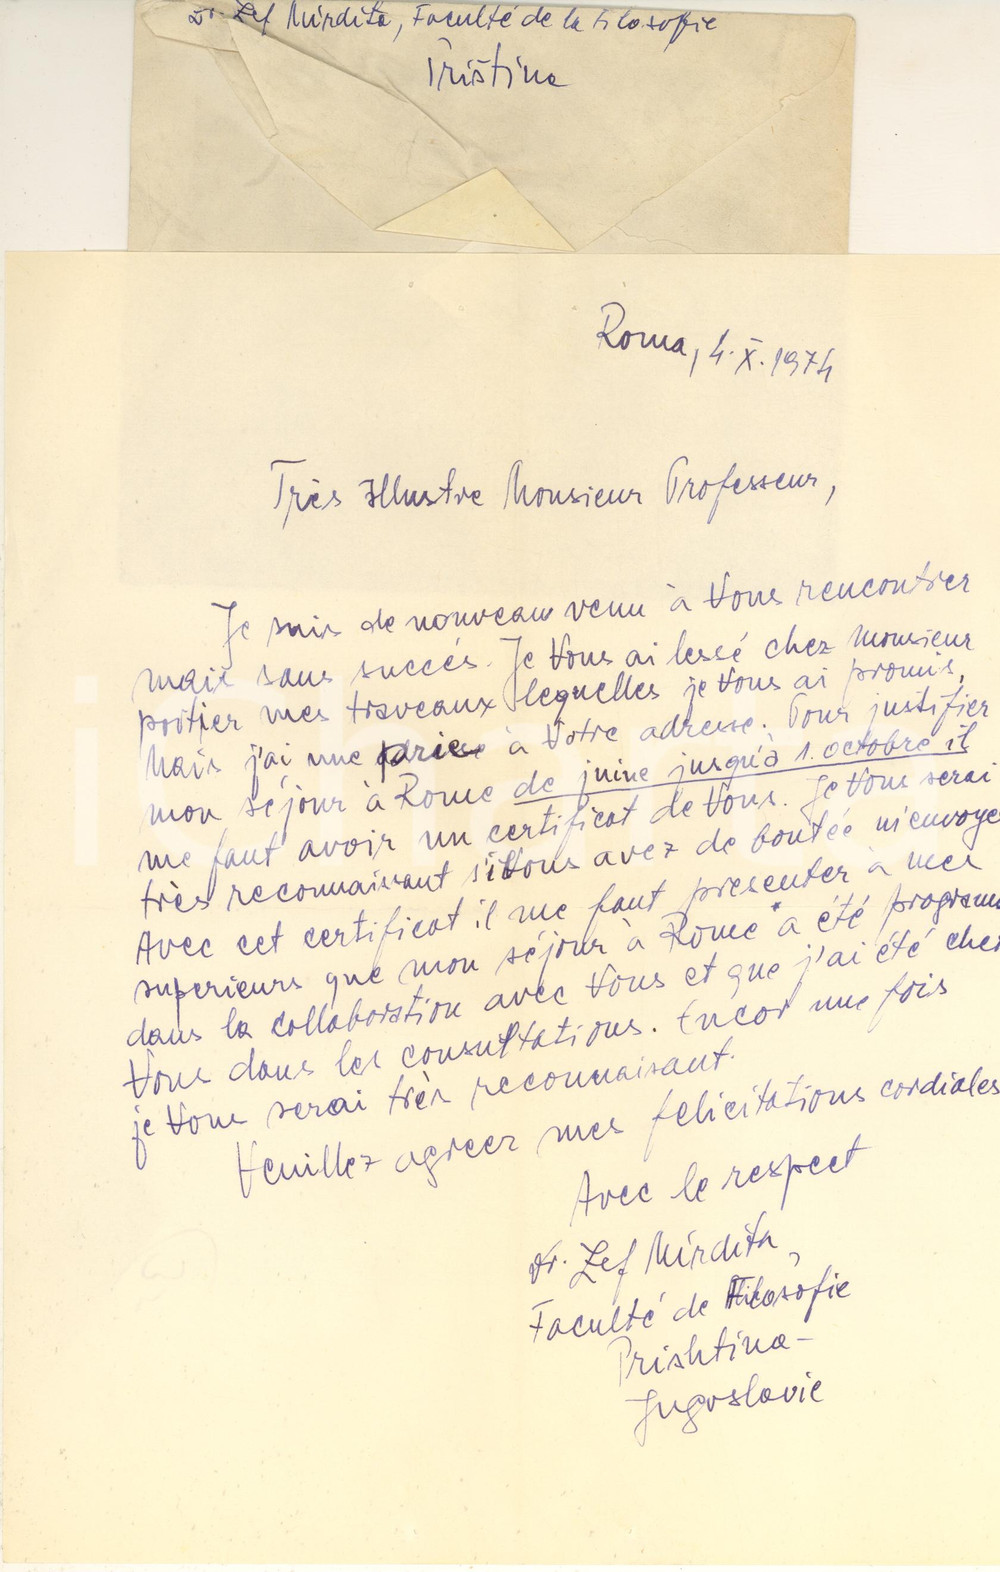 Dr. Zef Mirdita, Faculté de la Filosofie
Priština
Roma, 4. X. 1974
Très Illustre Monsieur Professeur,
Je suis de nouveau venu à Vous rencontrer
mais sans succés. Je Vous ai lessé chez Monsieur
potier mes traveaux lequelles je Vous ai promis.
Mais j'ai une prière à Votre adresse. Pour justifier
mon séjour à Rome de juine jusqu'à 1. octobre il
me faut avoir un certificat de Vous. Je Vous serai
très reconnaissant si Vous avez de bontée m'envoyer
Avec cet certificat il me faut presenter à mes
superieurs que mon séjour à Rome a été programé
dans la collaboration avec Vous et que j'ai été chez
Vous dans les consultations. Encor une fois
je Vous serai très reconnaissant.
Veuillez agreer mes felicitations cordiales
Avec le respect
Dr. Zef Mirdita,
Faculté de Filosofie
Prishtina-
Jugoslavie